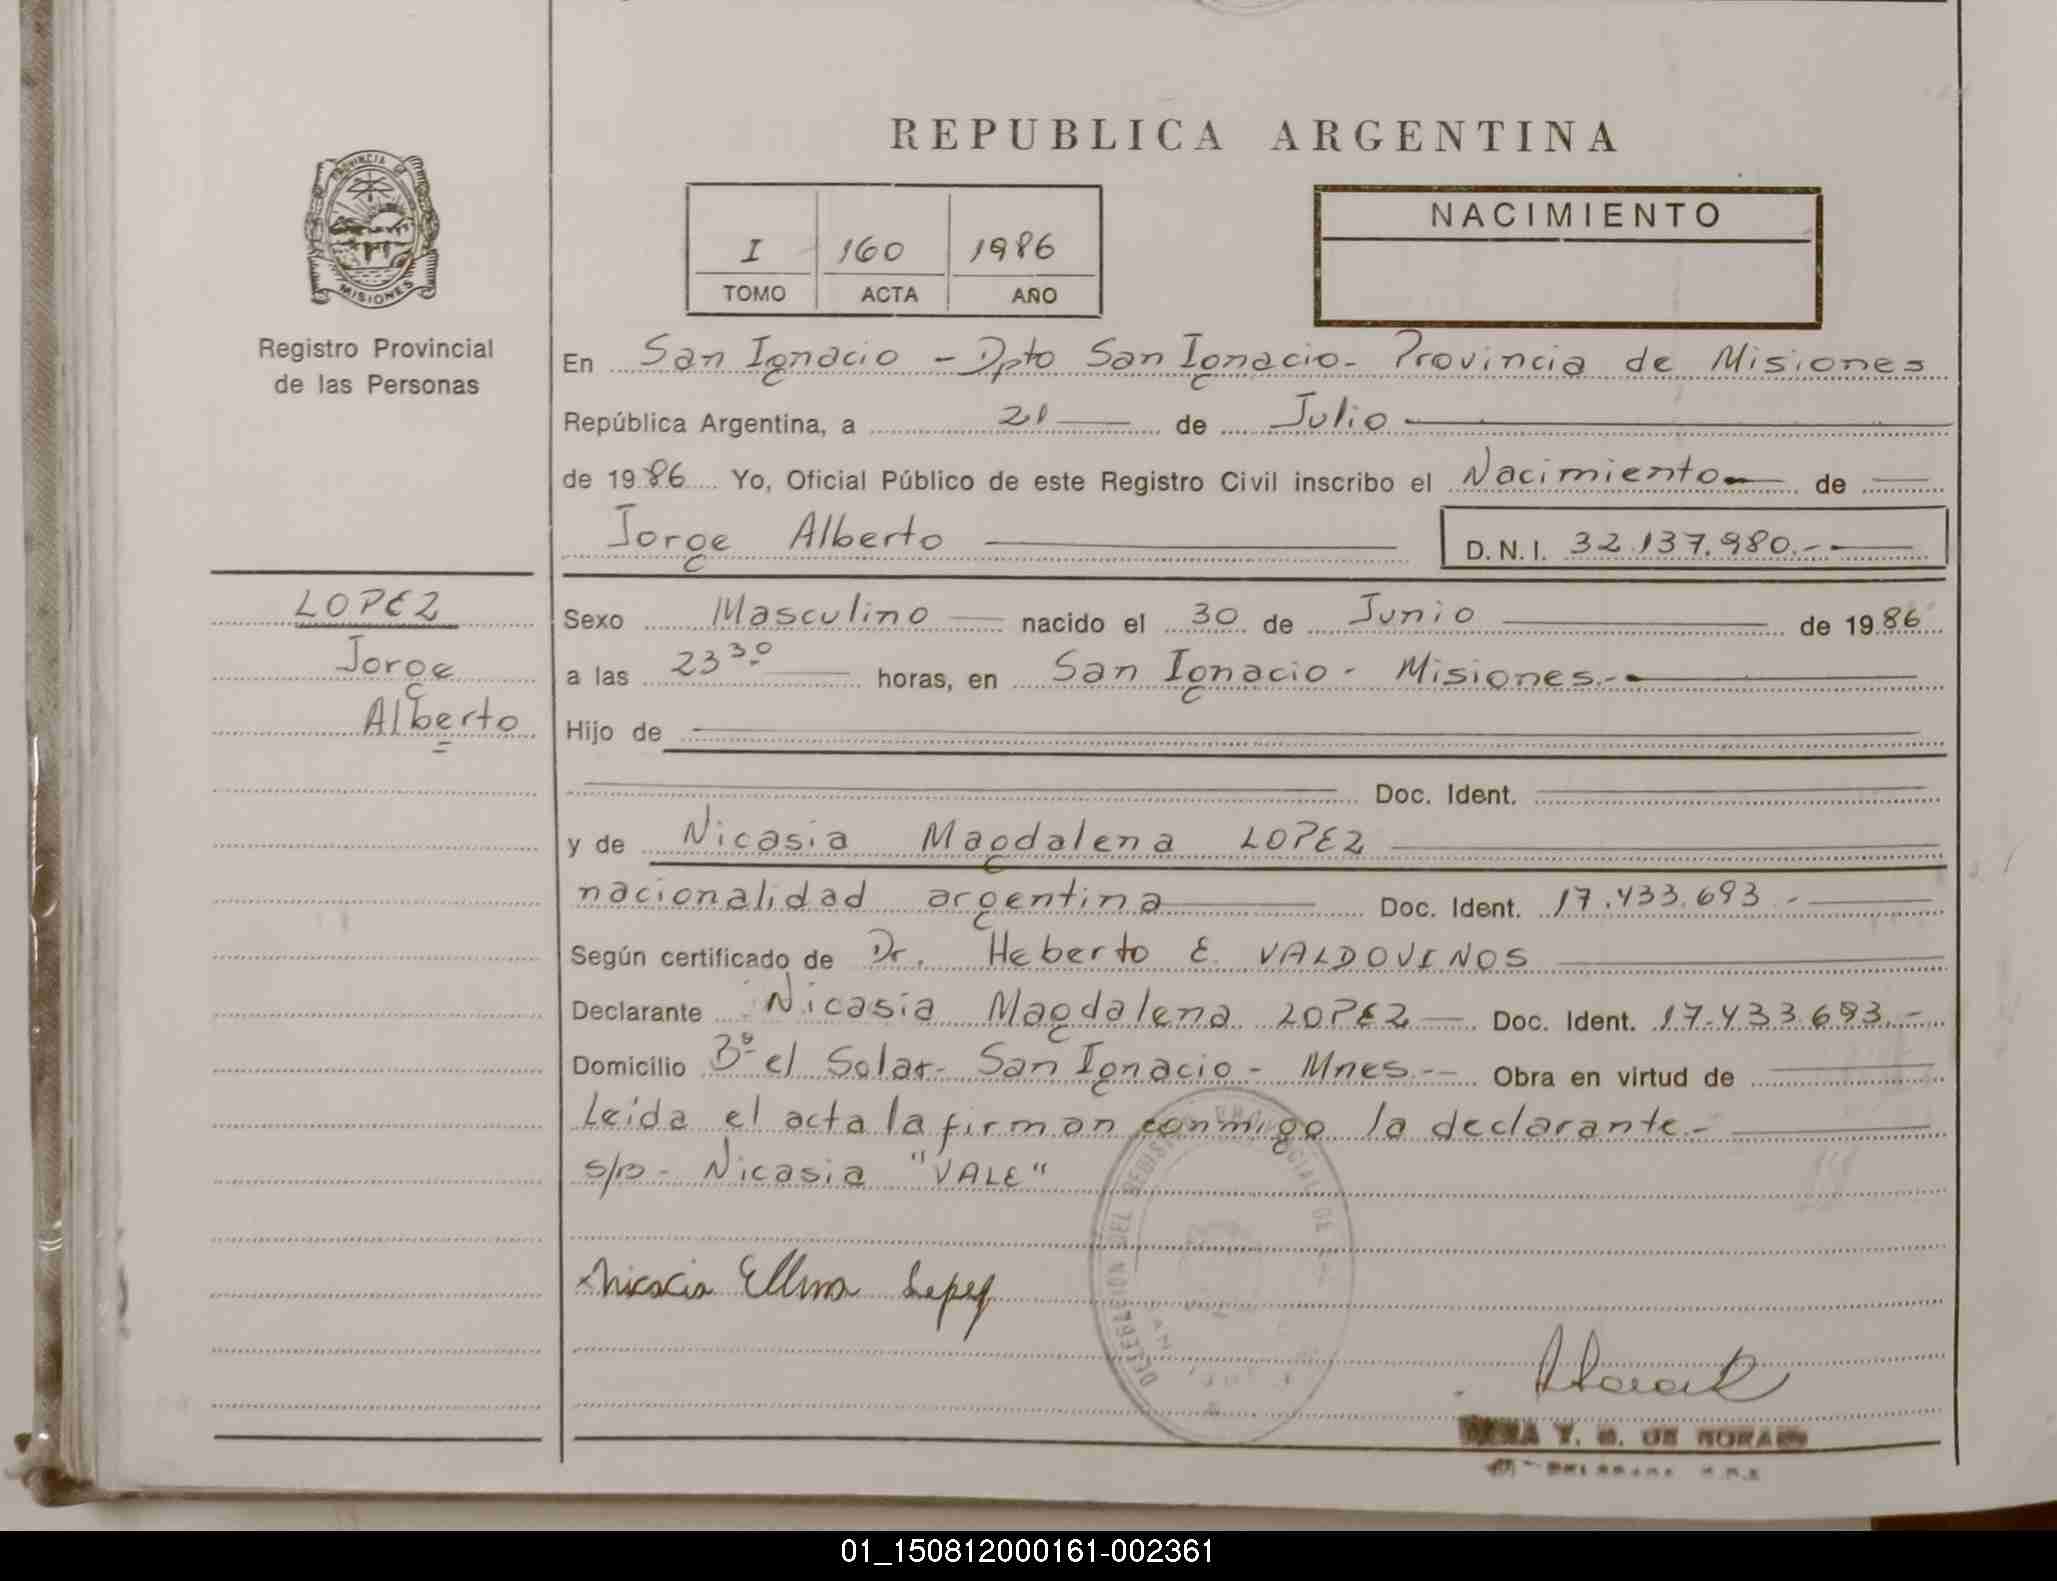 REPUBLICA ARGENTINA
PROVINCIA DE
MISIONES
Registro Provincial
de las Personas
I 160 1986
TOMO ACTA AÑO
NACIMIENTO
En San Ignacio - Dpto San Ignacio - Provincia de Misiones
República Argentina, a 21 de Julio
de 1986 Yo, Oficial Público de este Registro Civil inscribo el Nacimiento de
Jorge Alberto D.N.I. 32.137.980.-
LOPEZ
Jorge
Alberto
Sexo Masculino nacido el 30 de Junio de 1986
a las 23 30 horas, en San Ignacio - Misiones.-
Hijo de
Doc. Ident.
y de Nicasia Magdalena LOPEZ
nacionalidad argentina Doc. Ident. 17.433.693.-
Según certificado de Dr. Heberto E. VALDOVINOS
Declarante Nicasia Magdalena LOPEZ Doc. Ident. 17.433.693.-
Domicilio Bº el Solar - San Ignacio - Mnes.- Obra en virtud de
Leida el acta la firman conmigo la declarante.-
s/b - Nicasia "VALE"
DELEGACION DEL REGISTRO PROVINCIAL DE
Lopez
T. DE
01_150812000161-002361